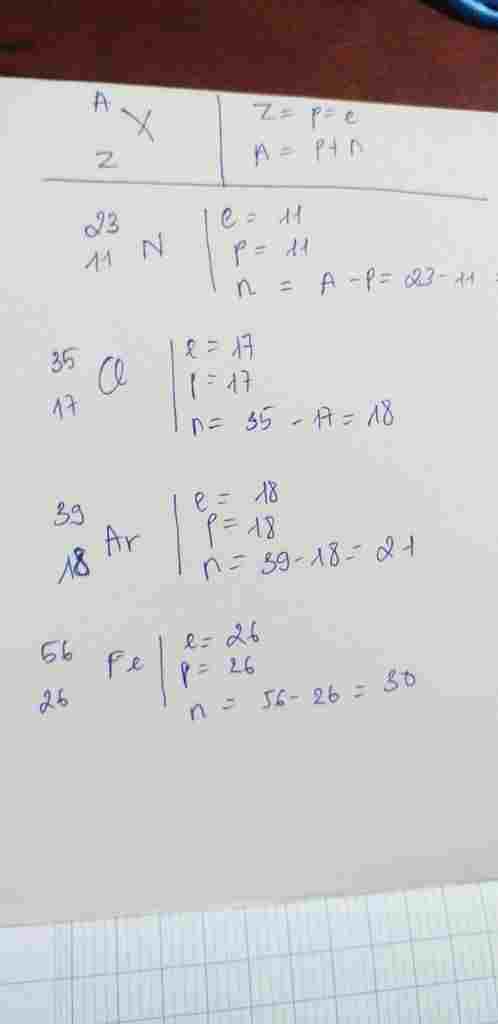 A X Z = p = e
Z A = p + n
23 e = 11
11 N p = 11
n = A - p = 23 - 11 =
35 Cl e = 17
17 p = 17
n = 35 - 17 = 18
39 e = 18
18 Ar p = 18
n = 39 - 18 = 21
56 Fe e = 26
26 p = 26
n = 56 - 26 = 30